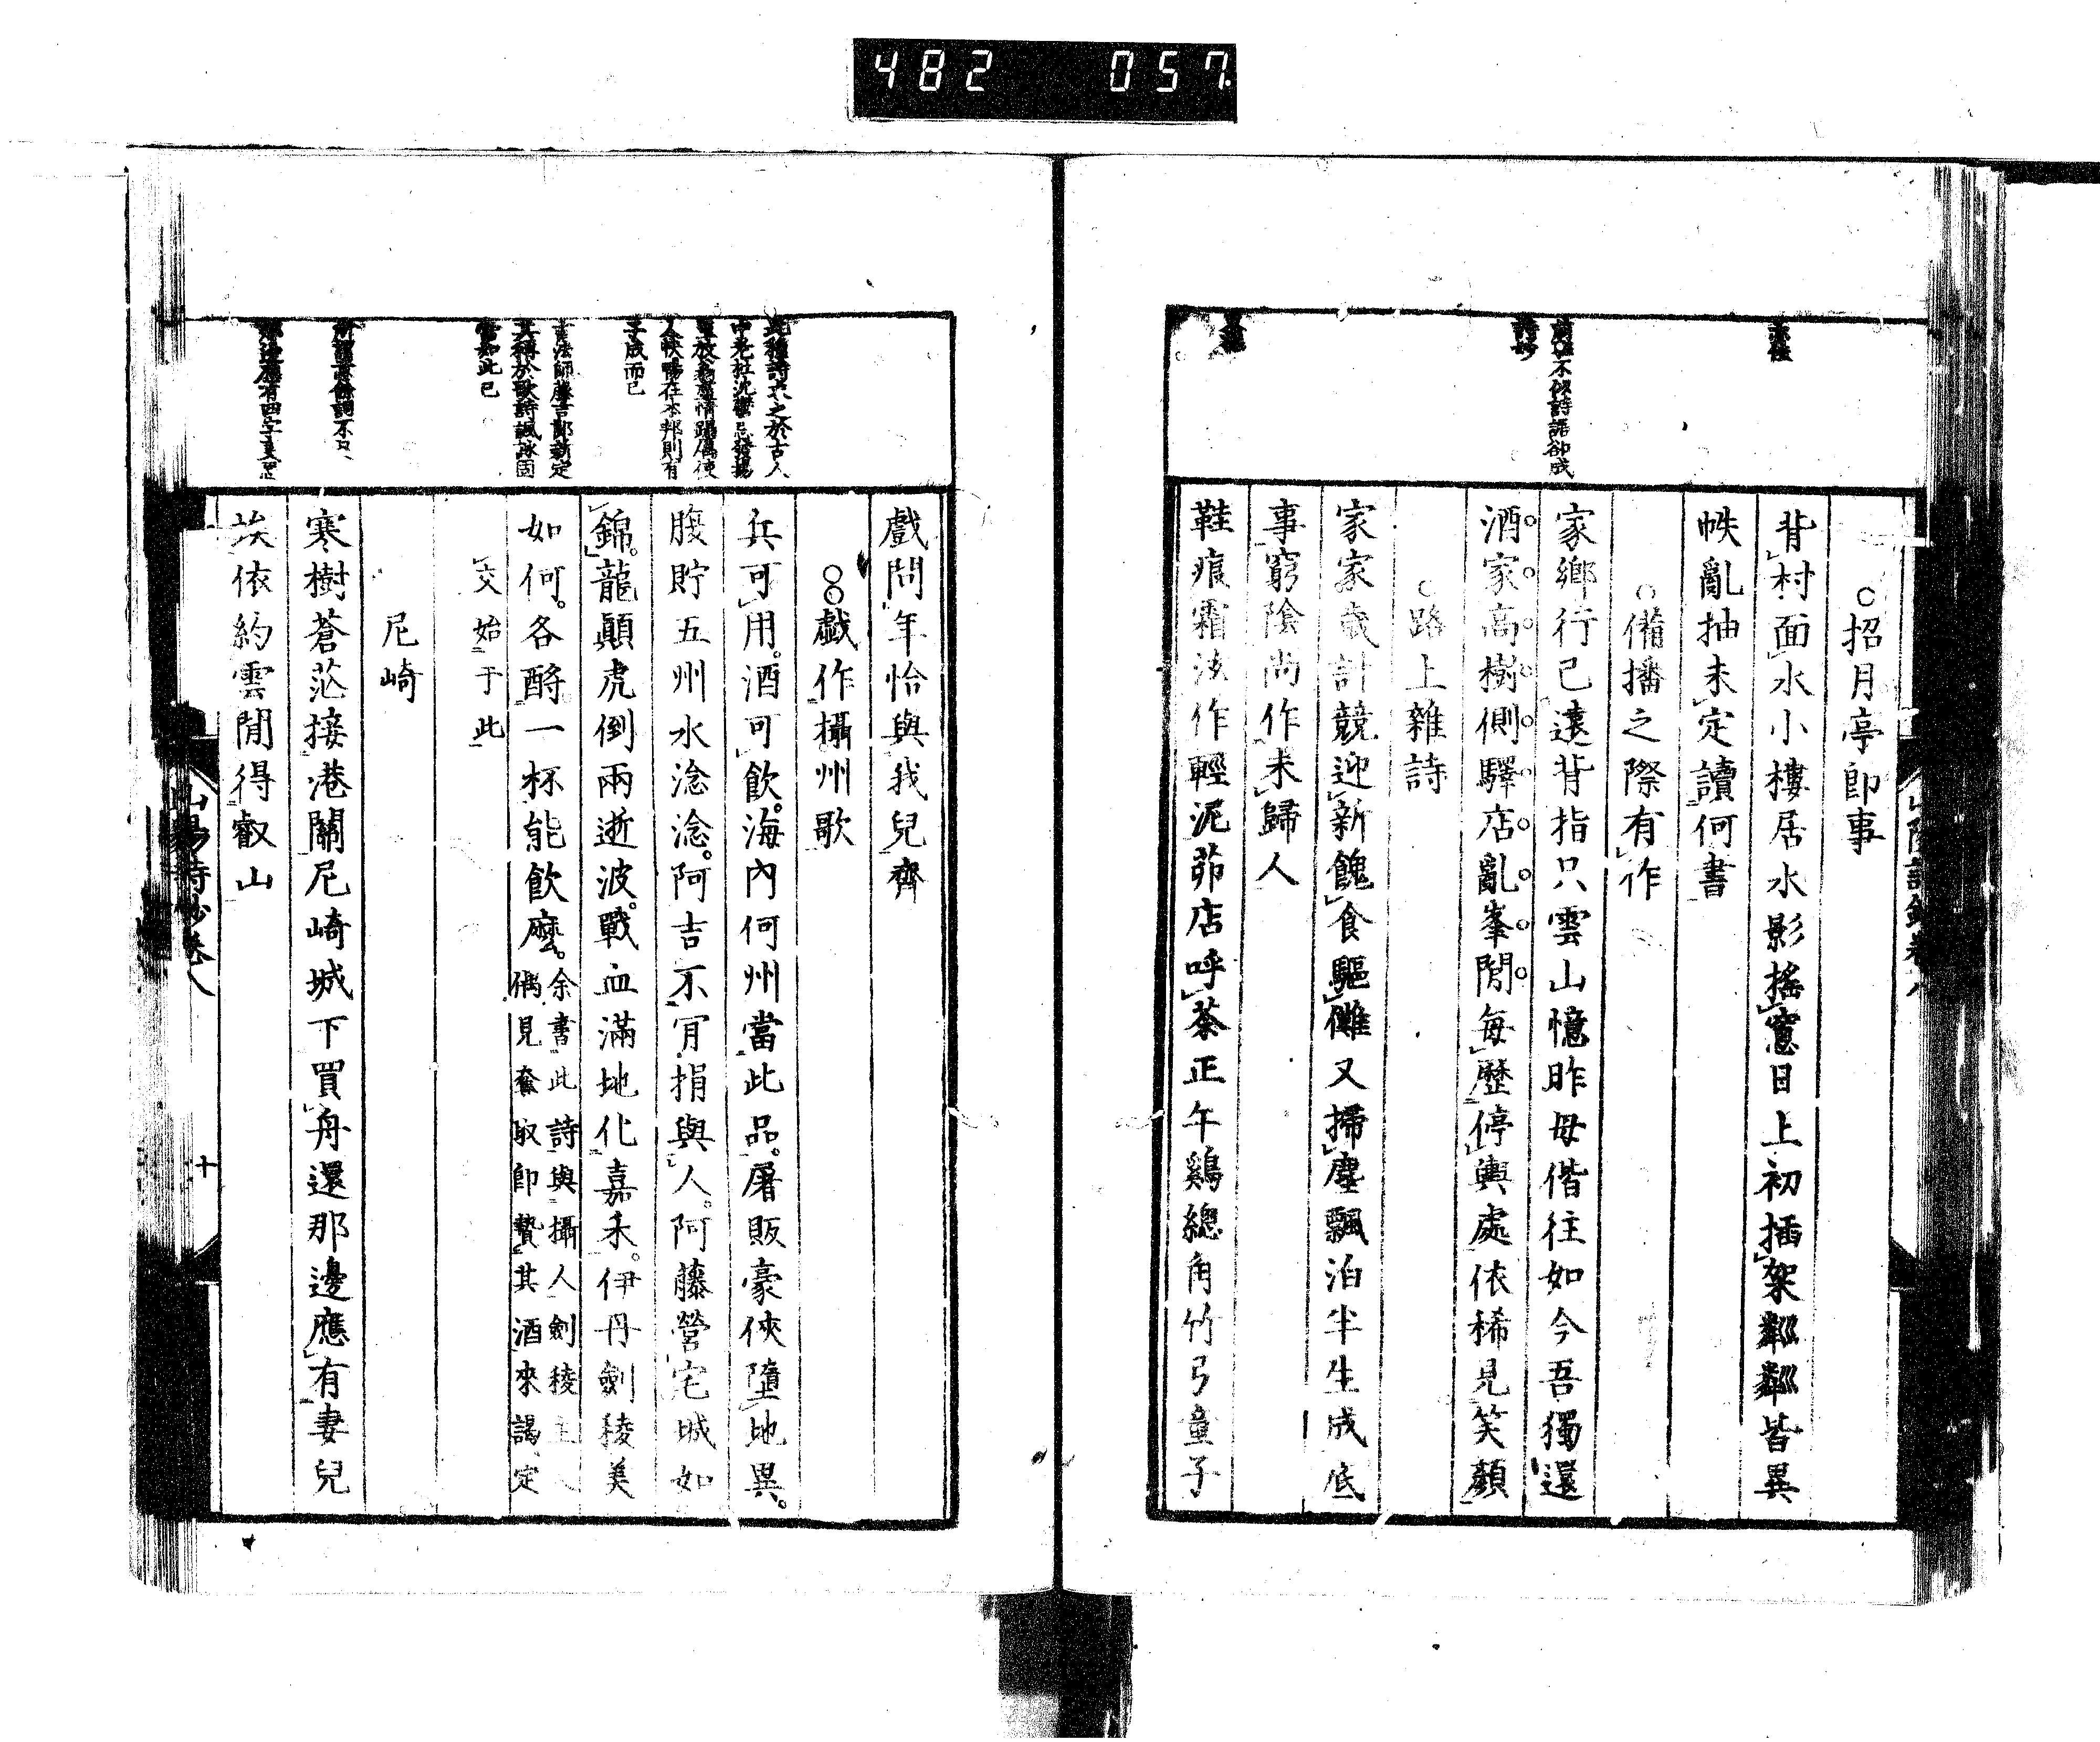 482 057
○招月亭卽事
背村面水小樓居水影搖窻日上初插架粼粼皆異
帙亂抽未定讀何書
○備播之際有作
家鄉行已遠背指只雲山憶昨母偕往如今吾獨還
酒家高樹側驛店亂峯間每歷停輿處依稀見笑顏
○路上雜詩
家家歲計競迎新餽食驅儺又掃塵飄泊半生成底
事窮陰尚作未歸人
鞋痕霜泫作輕泥茆店呼茶正午鷄總角竹弓童子
不似詩語卻成
詩妙
戲問年恰與我兒齊
○○戲作攝州歌
兵可用。酒可飲。海內何州當此品。屠販豪俠墮地異。
腹貯五州水淰淰。阿吉不肎捐與人。阿藤營宅城如
錦。龍顚虎倒兩逝波。戰血滿地化嘉禾。伊丹劍稜美
如何。各酹一杯能飲麼。
余書此詩與攝人劍稜主人
偶見奪取卽贄其酒來謁定
交始于此
尼崎
寒樹蒼茫接港關尼崎城下買舟還那邊應有妻兒
埃依約雲閒得叡山
此種詩求之於古人
中老杜沈鬱忌發揚
人快暢在本邦則有
子成而已
吉法師藤吉郎新定
其稱於歌詩諷詠固
當如此已
山陽詩鈔卷八
十